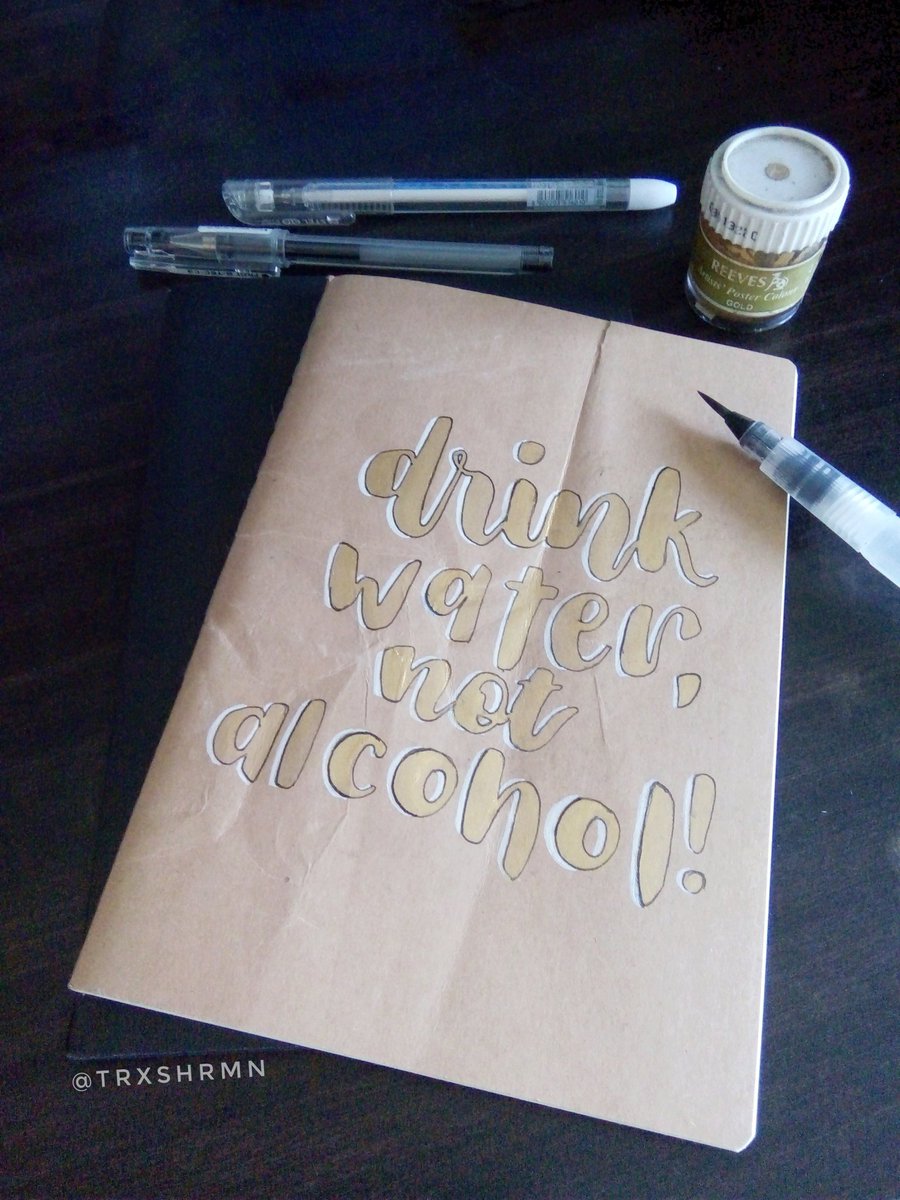 REEVES
Artists' Poster Colour
GOLD
drink
water,
not
alcohol!
@TRXSHRMN